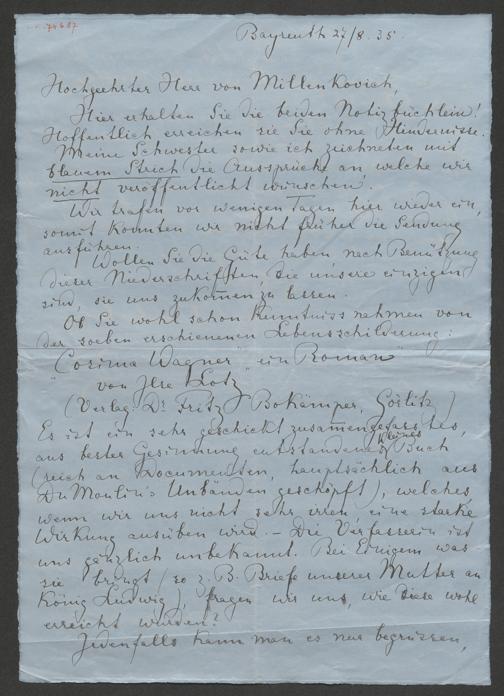 74637
Bayreuth 27/8. 35.
Hochgeehrter Herr von Millenkovich,
Hier erhalten Sie die beiden Notizbüchlein!
Hoffentlich erreichen sie Sie ohne Hindernisse.
Meine Schwester sowie ich zeichneten mit
blauem Strich die Aussprüche an, welche wir
nicht veröffentlicht wünschen.
Wir trafen vor wenigen Tagen hier wieder ein,
somit konnten wir nicht früher die Sendung
ausführen.
Wollen Sie die Güte haben, nach Benützung
dieser Niederschriften, die unsere einzigen
sind, sie uns zukommen zu lassen.
Ob Sie wohl schon Kenntniss nahmen von
der soeben erschienenen Lebensschilderung:
"Cosima Wagner" ein Roman"
von Ilse Lotz
(Verlag: Dr. Fritz Bokämper, Görlitz)
Es ist ein sehr geschickt zusammengefasstes,
aus bester Gesinnung entstandenes kleines Buch
(reich an Documenten, hauptsächlich aus
Du Moulin's Unbänden geschöpft), welches,
wenn wir uns nicht sehr irren eine starke
Wirkung ausüben wird. – Die Verfasserin ist
uns gänzlich unbekannt. Bei Einigem was
sie bringt (so z. B. Briefe unserer Mutter an
König Ludwig), fragen wir uns, wie diese wohl
erreicht wurden?
Jedenfalls kann man es nur begrüssen,